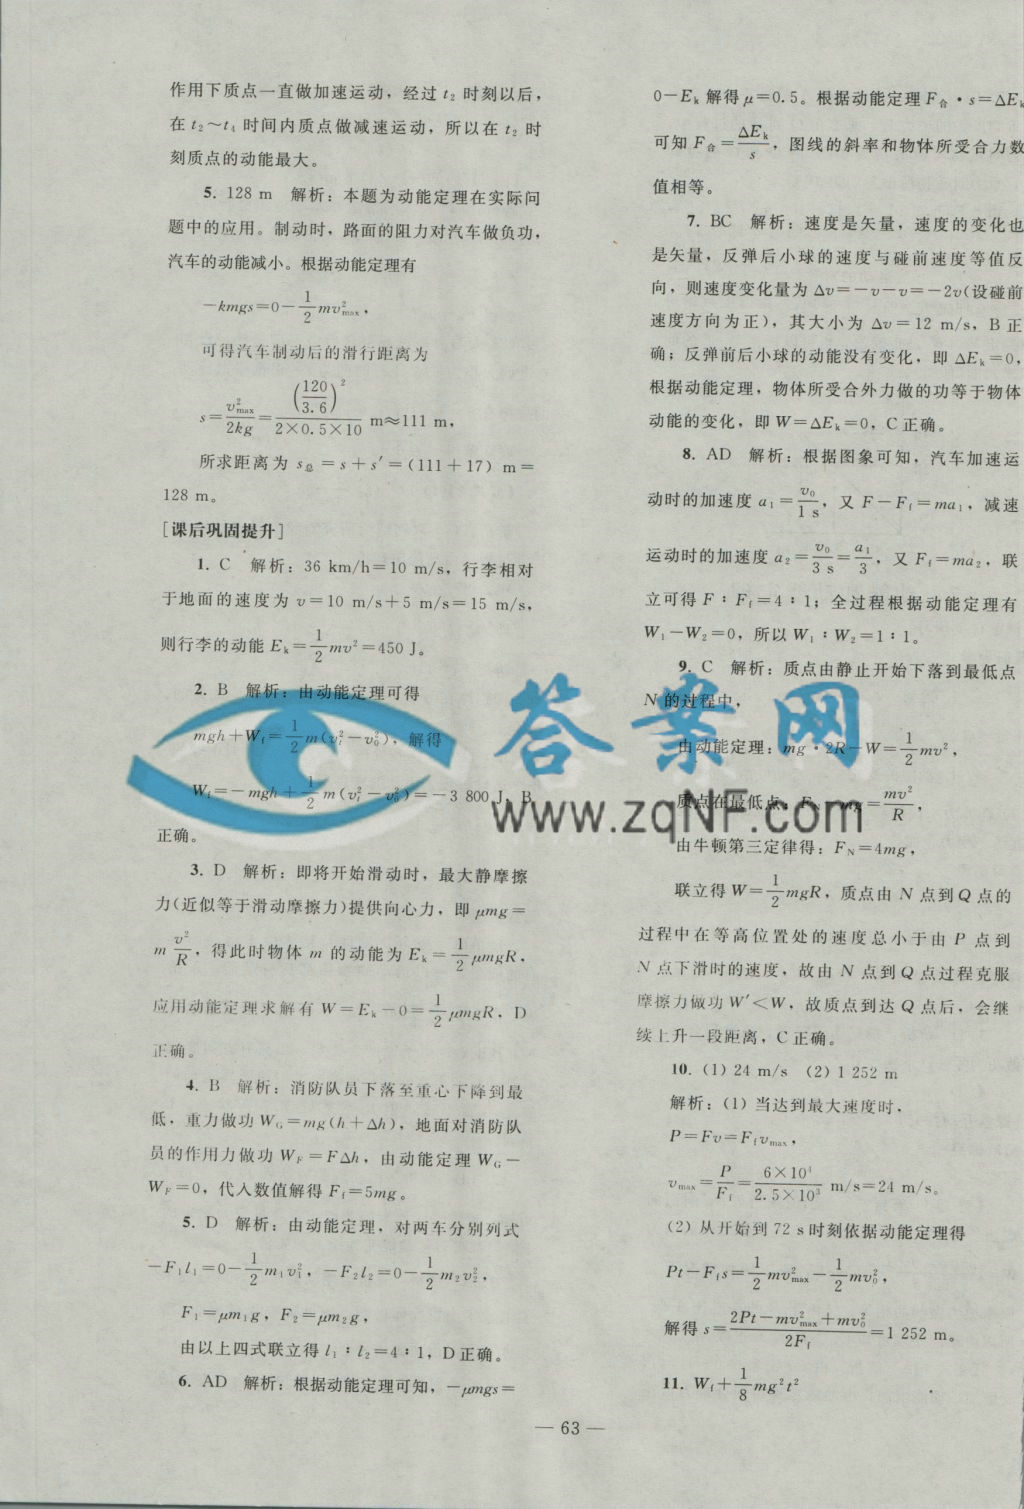 作用下质点一直做加速运动，经过 t₂ 时刻以后，
在 t₂～t₄ 时间内质点做减速运动，所以在 t₂ 时
刻质点的动能最大。
5. 128 m 解析：本题为动能定理在实际问
题中的应用。制动时，路面的阻力对汽车做负功，
汽车的动能减小。根据动能定理有
－kmgs＝0－1/2 mv²max，
可得汽车制动后的滑行距离为
s＝v²max/2kg＝(120/3.6)²/2×0.5×10 m≈111 m，
所求距离为 s总＝s＋s′＝(111＋17) m＝
128 m。
[课后巩固提升]
1. C 解析：36 km/h＝10 m/s，行李相对
于地面的速度为 v＝10 m/s＋5 m/s＝15 m/s，
则行李的动能 Ek＝1/2 mv²＝450 J。
2. B 解析：由动能定理可得
mgh＋Wf＝1/2 m(v²t－v²0)，解得
Wf＝－mgh＋1/2 m(v²t－v²0)＝－3 800 J，B
正确。
3. D 解析：即将开始滑动时，最大静摩擦
力(近似等于滑动摩擦力)提供向心力，即 μmg＝
m v²/R，得此时物体 m 的动能为 Ek＝1/2 μmgR，
应用动能定理求解有 W＝Ek－0＝1/2 μmgR，D
正确。
4. B 解析：消防队员下落至重心下降到最
低，重力做功 WG＝mg(h＋Δh)，地面对消防队
员的作用力做功 WF＝FΔh，由动能定理 WG－
WF＝0，代入数值解得 Ff＝5mg。
5. D 解析：由动能定理，对两车分别列式
－F₁l₁＝0－1/2 m₁v²₁，－F₂l₂＝0－1/2 m₂v²₂，
F₁＝μm₁g，F₂＝μm₂g，
由以上四式联立得 l₁∶l₂＝4∶1，D正确。
6. AD 解析：根据动能定理可知，－μmgs＝
0－Ek 解得 μ＝0.5。根据动能定理 F合·s＝ΔEk
可知 F合＝ΔEk/s，图线的斜率和物体所受合力数
值相等。
7. BC 解析：速度是矢量，速度的变化也
是矢量，反弹后小球的速度与碰前速度等值反
向，则速度变化量为 Δv＝－v－v＝－2v(设碰前
速度方向为正)，其大小为 Δv＝12 m/s，B 正
确；反弹前后小球的动能没有变化，即 ΔEk＝0，
根据动能定理，物体所受合外力做的功等于物体
动能的变化，即 W＝ΔEk＝0，C正确。
8. AD 解析：根据图象可知，汽车加速运
动时的加速度 a₁＝v₀/1 s，又 F－Ff＝ma₁，减速
运动时的加速度 a₂＝v₀/3 s＝a₁/3，又 Ff＝ma₂，联
立可得 F∶Ff＝4∶1；全过程根据动能定理有
W₁－W₂＝0，所以 W₁∶W₂＝1∶1。
9. C 解析：质点由静止开始下落到最低点
N 的过程中，
由动能定理：mg·2R－W＝1/2 mv²，
质点在最低点：FN－mg＝mv²/R，
由牛顿第三定律得：FN＝4mg，
联立得 W＝1/2 mgR，质点由 N 点到 Q 点的
过程中在等高位置处的速度总小于由 P 点到
N 点下滑时的速度，故由 N 点到 Q 点过程克服
摩擦力做功 W′＜W，故质点到达 Q 点后，会继
续上升一段距离，C正确。
10. (1) 24 m/s (2) 1 252 m
解析：(1) 当达到最大速度时，
P＝Fv＝Ffvmax，
vmax＝P/Ff＝6×10⁴/2.5×10³ m/s＝24 m/s。
(2) 从开始到 72 s 时刻依据动能定理得
Pt－Ffs＝1/2 mv²max－1/2 mv²0，
解得 s＝2Pt－mv²max＋mv²0/2Ff＝1 252 m。
11. Wf＋1/8 mg²t²
— 63 —
答案网
www.zqNF.com